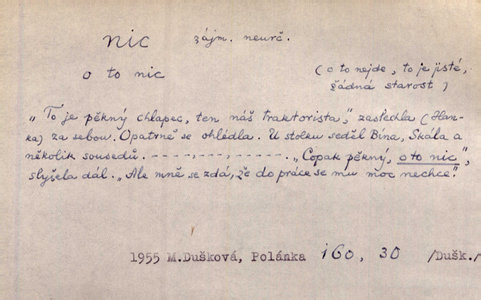 nic zájm. neurč.
o to nic (o to nejde, to je jisté,
žádná starost)
„To je pěkný chlapec, ten náš traktorista,“ zaslechla (Han-
ka) za sebou. Opatrně se ohlédla. U stolku seděl Bína, Skála a
několik sousedů. -.-.-.-.-.-.-. „Copak pěkný, o to nic“,
slyšela dál. „Ale mně se zdá, že do práce se mu moc nechce.“
1955 M.Dušková, Polánka 160, 30 /Dušk./